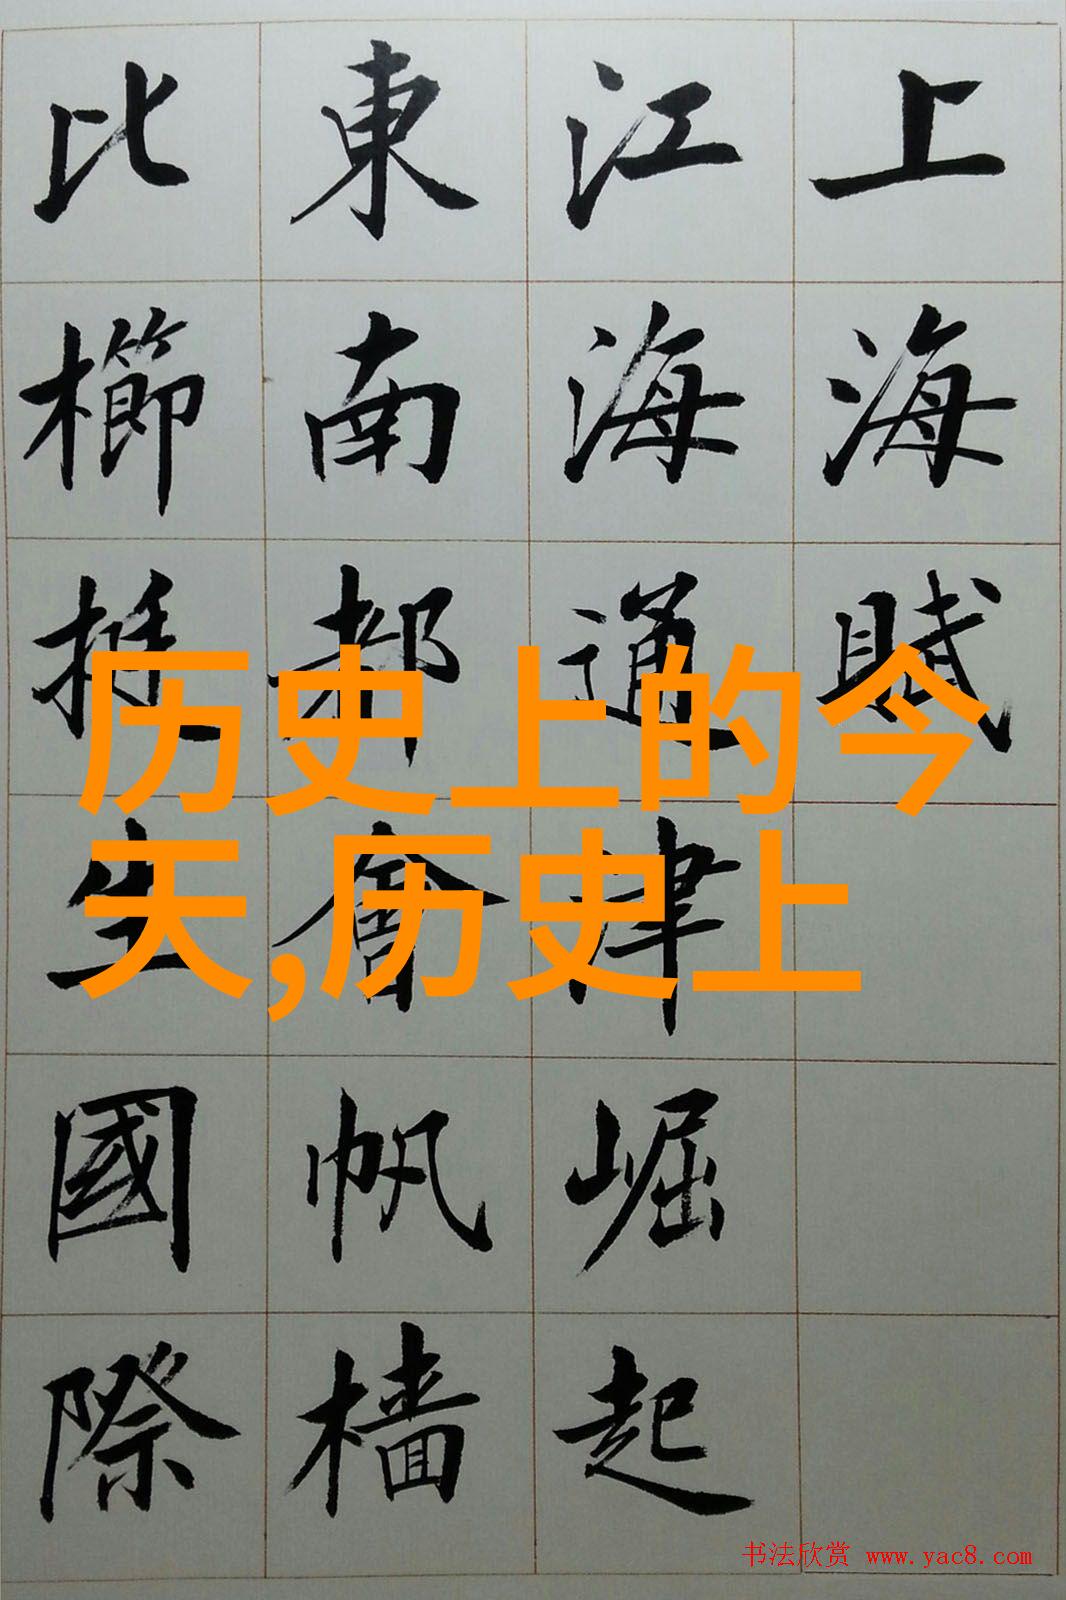 上海賦
江海通津崛起
東南都會帆檣
比櫛挺生國際
历史上的今
天,历史上
书法欣赏 www.yac8.com